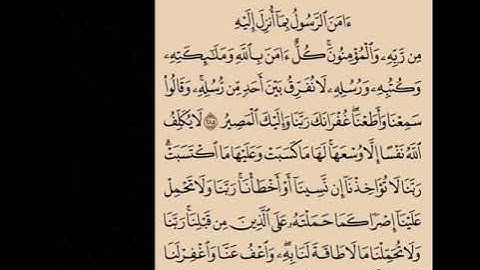 ءَامَنَ ٱلرَّسُولُ بِمَآ أُنزِلَ إِلَيْهِ
مِن رَّبِّهِۦ وَٱلْمُؤْمِنُونَۚ كُلٌّ ءَامَنَ بِٱللَّهِ وَمَلَـٰٓئِكَتِهِۦ
وَكُتُبِهِۦ وَرُسُلِهِۦ لَا نُفَرِّقُ بَيْنَ أَحَدٍ مِّن رُّسُلِهِۦۚ وَقَالُوا۟
سَمِعْنَا وَأَطَعْنَاۖ غُفْرَانَكَ رَبَّنَا وَإِلَيْكَ ٱلْمَصِيرُ ٢٨٥ لَا يُكَلِّفُ
ٱللَّهُ نَفْسًا إِلَّا وُسْعَهَاۚ لَهَا مَا كَسَبَتْ وَعَلَيْهَا مَا ٱكْتَسَبَتْۗ
رَبَّنَا لَا تُؤَاخِذْنَآ إِن نَّسِينَآ أَوْ أَخْطَأْنَاۚ رَبَّنَا وَلَا تَحْمِلْ
عَلَيْنَآ إِصْرًا كَمَا حَمَلْتَهُۥ عَلَى ٱلَّذِينَ مِن قَبْلِنَاۚ رَبَّنَا
وَلَا تُحَمِّلْنَا مَا لَا طَاقَةَ لَنَا بِهِۦۖ وَٱعْفُ عَنَّا وَٱغْفِرْ لَنَا